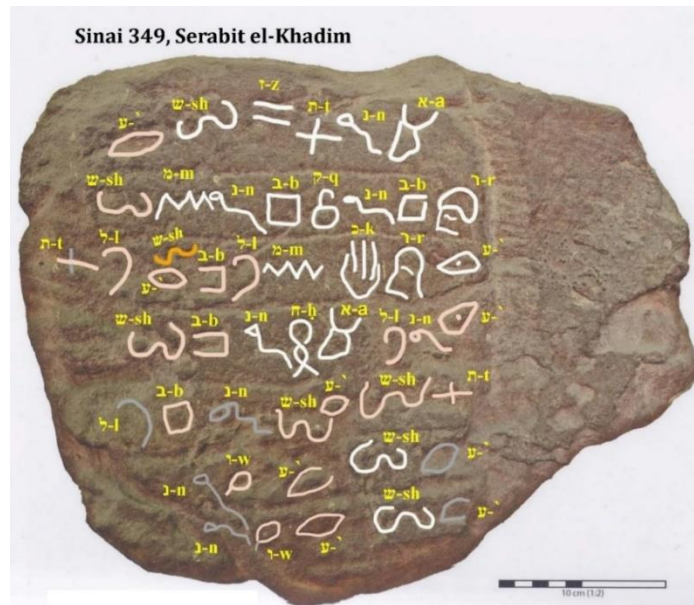 Sinai 349, Serabit el-Khadim
ע-` ש-sh ז-z ת-t נ-n א-a
ש-sh מ-m נ-n ב-b ק-q נ-n ב-b ר-r
ת-t ל-l ע-` ש-sh ב-b ל-l מ-m כ-k ר-r ע-`
ש-sh ב-b נ-n ח-ḥ א-a ל-l נ-n ע-`
ל-l ב-b נ-n ש-sh ע-` ש-sh ת-t
נ-n ו-w ע-` ש-sh ע-`
נ-n ו-w ע-` ש-sh ע-`
10 cm (1:2)